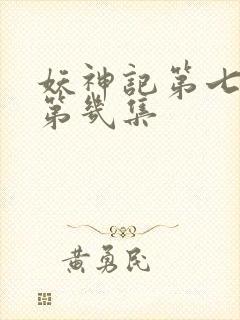 妖神記第七
第幾集
黃勇民